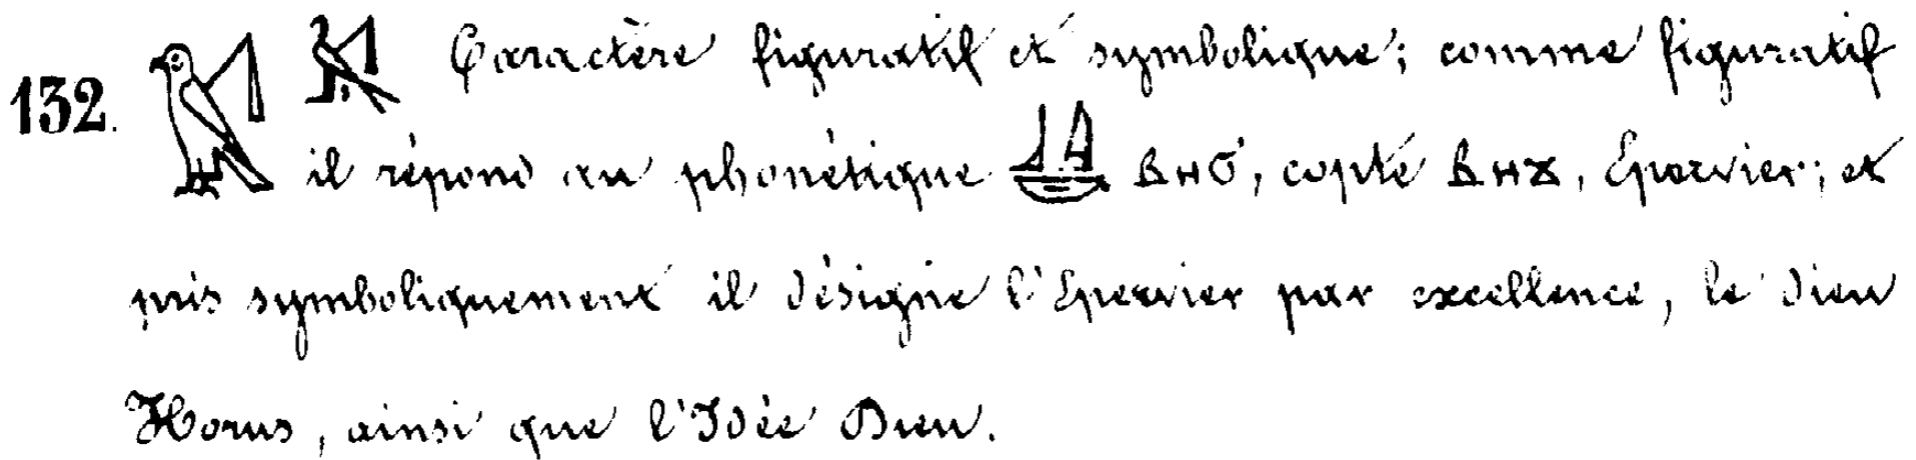 132. Caractère figuratif et symbolique; comme figuratif
il répond au phonétique ⲂⲎϬ, copte ⲂⲎϪ, Épervier; et
pris symboliquement il désigne l'Épervier par excellence, le dieu
Horus, ainsi que l'Idée Dieu.